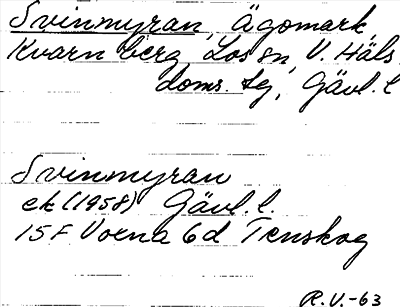 Svinmyran, Ägomark,
Kvarnberg, Los sn, V. Häls.
doms. tg, Gävl. l
Svinmyran
ek (1958) Gävl. l.
15F Voxna 6d Tenskog
R.V.-63